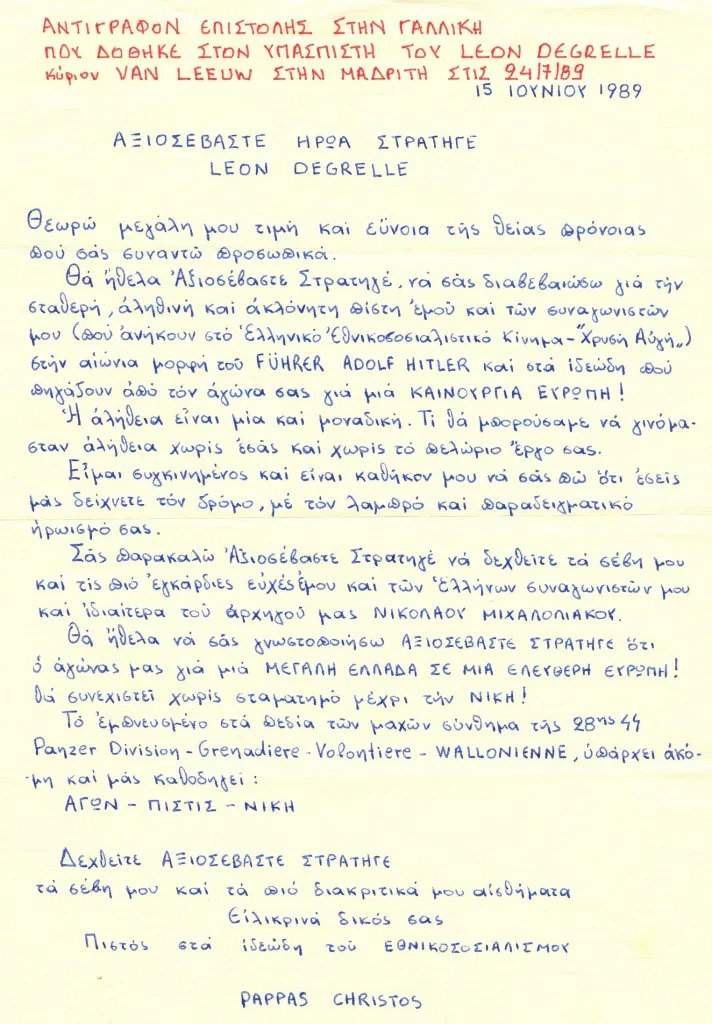 ΑΝΤΙΓΡΑΦΟΝ ΕΠΙΣΤΟΛΗΣ ΣΤΗΝ ΓΑΛΛΙΚΗ
ΠΟΥ ΔΟΘΗΚΕ ΣΤΟΝ ΥΠΑΣΠΙΣΤΗ ΤΟΥ LEON DEGRELLE
κύριον VAN LEEUW ΣΤΗΝ ΜΑΔΡΙΤΗ ΣΤΙΣ 24/7/89
15 ΙΟΥΝΙΟΥ 1989
ΑΞΙΟΣΕΒΑΣΤΕ ΗΡΩΑ ΣΤΡΑΤΗΓΕ
LEON DEGRELLE
Θεωρῶ μεγάλη μου τιμή καί εὔνοια τῆς θείας πρόνοιας
πού σᾶς συναντῶ προσωπικά.
Θά ἤθελα Ἀξιοσέβαστε Στρατηγέ, νά σᾶς διαβεβαιώσω γιά τήν
σταθερή, ἀληθινή καί ἀκλόνητη πίστη ἐμοῦ καί τῶν συναγωνιστῶν
μου (πού ἀνήκουν στό Ἑλληνικό Ἐθνικοσοσιαλιστικό Κίνημα-"Χρυσῆ Αὐγή„)
στήν αἰώνια μορφή τοῦ FÜHRER ADOLF HITLER καί στά ἰδεώδη πού
πηγάζουν ἀπό τόν ἀγώνα σας γιά μιά ΚΑΙΝΟΥΡΓΙΑ ΕΥΡΩΠΗ!
Ἡ ἀλήθεια εἶναι μία καί μοναδική. Τί θά μπορούσαμε νά γινόμα-
σταν ἀλήθεια χωρίς ἐσᾶς καί χωρίς τό πελώριο ἔργο σας.
Εἶμαι συγκινημένος καί εἶναι καθῆκον μου νά σᾶς πῶ ὅτι ἐσεῖς
μᾶς δείχνετε τόν δρόμο, μέ τόν λαμπρό καί παραδειγματικό
ἡρωισμό σας.
Σᾶς παρακαλῶ Ἀξιοσέβαστε Στρατηγέ νά δεχθεῖτε τά σέβη μου
καί τίς πιό ἐγκάρδιες εὐχές ἐμου καί τῶν Ἑλλήνων συναγωνιστῶν μου
καί ἰδιαίτερα τοῦ ἀρχηγοῦ μας ΝΙΚΟΛΑΟΥ ΜΙΧΑΛΟΛΙΑΚΟΥ.
Θά ἤθελα νά σᾶς γνωστοποιήσω ΑΞΙΟΣΕΒΑΣΤΕ ΣΤΡΑΤΗΓΕ ὅτι
ὁ ἀγώνας μας γιά μιά ΜΕΓΑΛΗ ΕΛΛΑΔΑ ΣΕ ΜΙΑ ΕΛΕΥΘΕΡΗ ΕΥΡΩΠΗ!
θά συνεχιστεῖ χωρίς σταματημό μέχρι τήν ΝΙΚΗ!
Τό ἐμπνευσμένο στά πεδία τῶν μαχῶν σύνθημα τῆς 28ης 44
Panzer Division - Grenadiere - Volontiere - WALLONIENNE, ὑπάρχει ἀκό-
μη καί μᾶς καθοδηγεῖ:
ΑΓΩΝ - ΠΙΣΤΙΣ - ΝΙΚΗ
Δεχθεῖτε ΑΞΙΟΣΕΒΑΣΤΕ ΣΤΡΑΤΗΓΕ
τά σέβη μου καί τά πιό διακριτικά μου αἰσθήματα
Εἰλικρινά δικός σας
Πιστός στά ἰδεώδη τοῦ ΕΘΝΙΚΟΣΟΣΙΑΛΙΣΜΟΥ
PAPPAS CHRISTOS